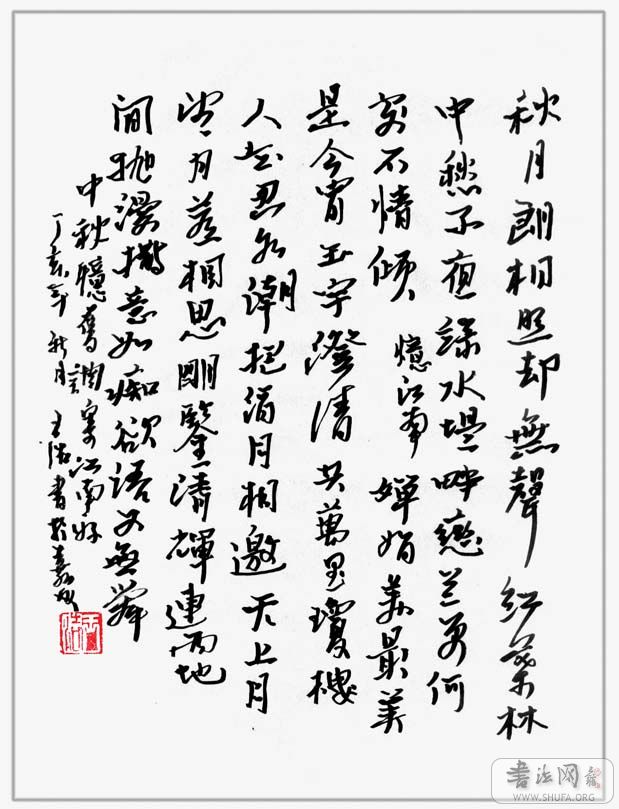 秋月朗相照却無聲紅葉林
中愁不夜綠水堤畔戀
不情傾憶江南嬋娟美最美
是今宵玉宇澄清共萬里瓊樓
人在思如潮把酒月相邀天上月
望月若相思明鑒清輝連兩地
間拋漫攜意如痴欲語又無聲
中秋憶舊調寄江南好
丁亥年秋月 書於
書法网
WWW.SHUFA.ORG